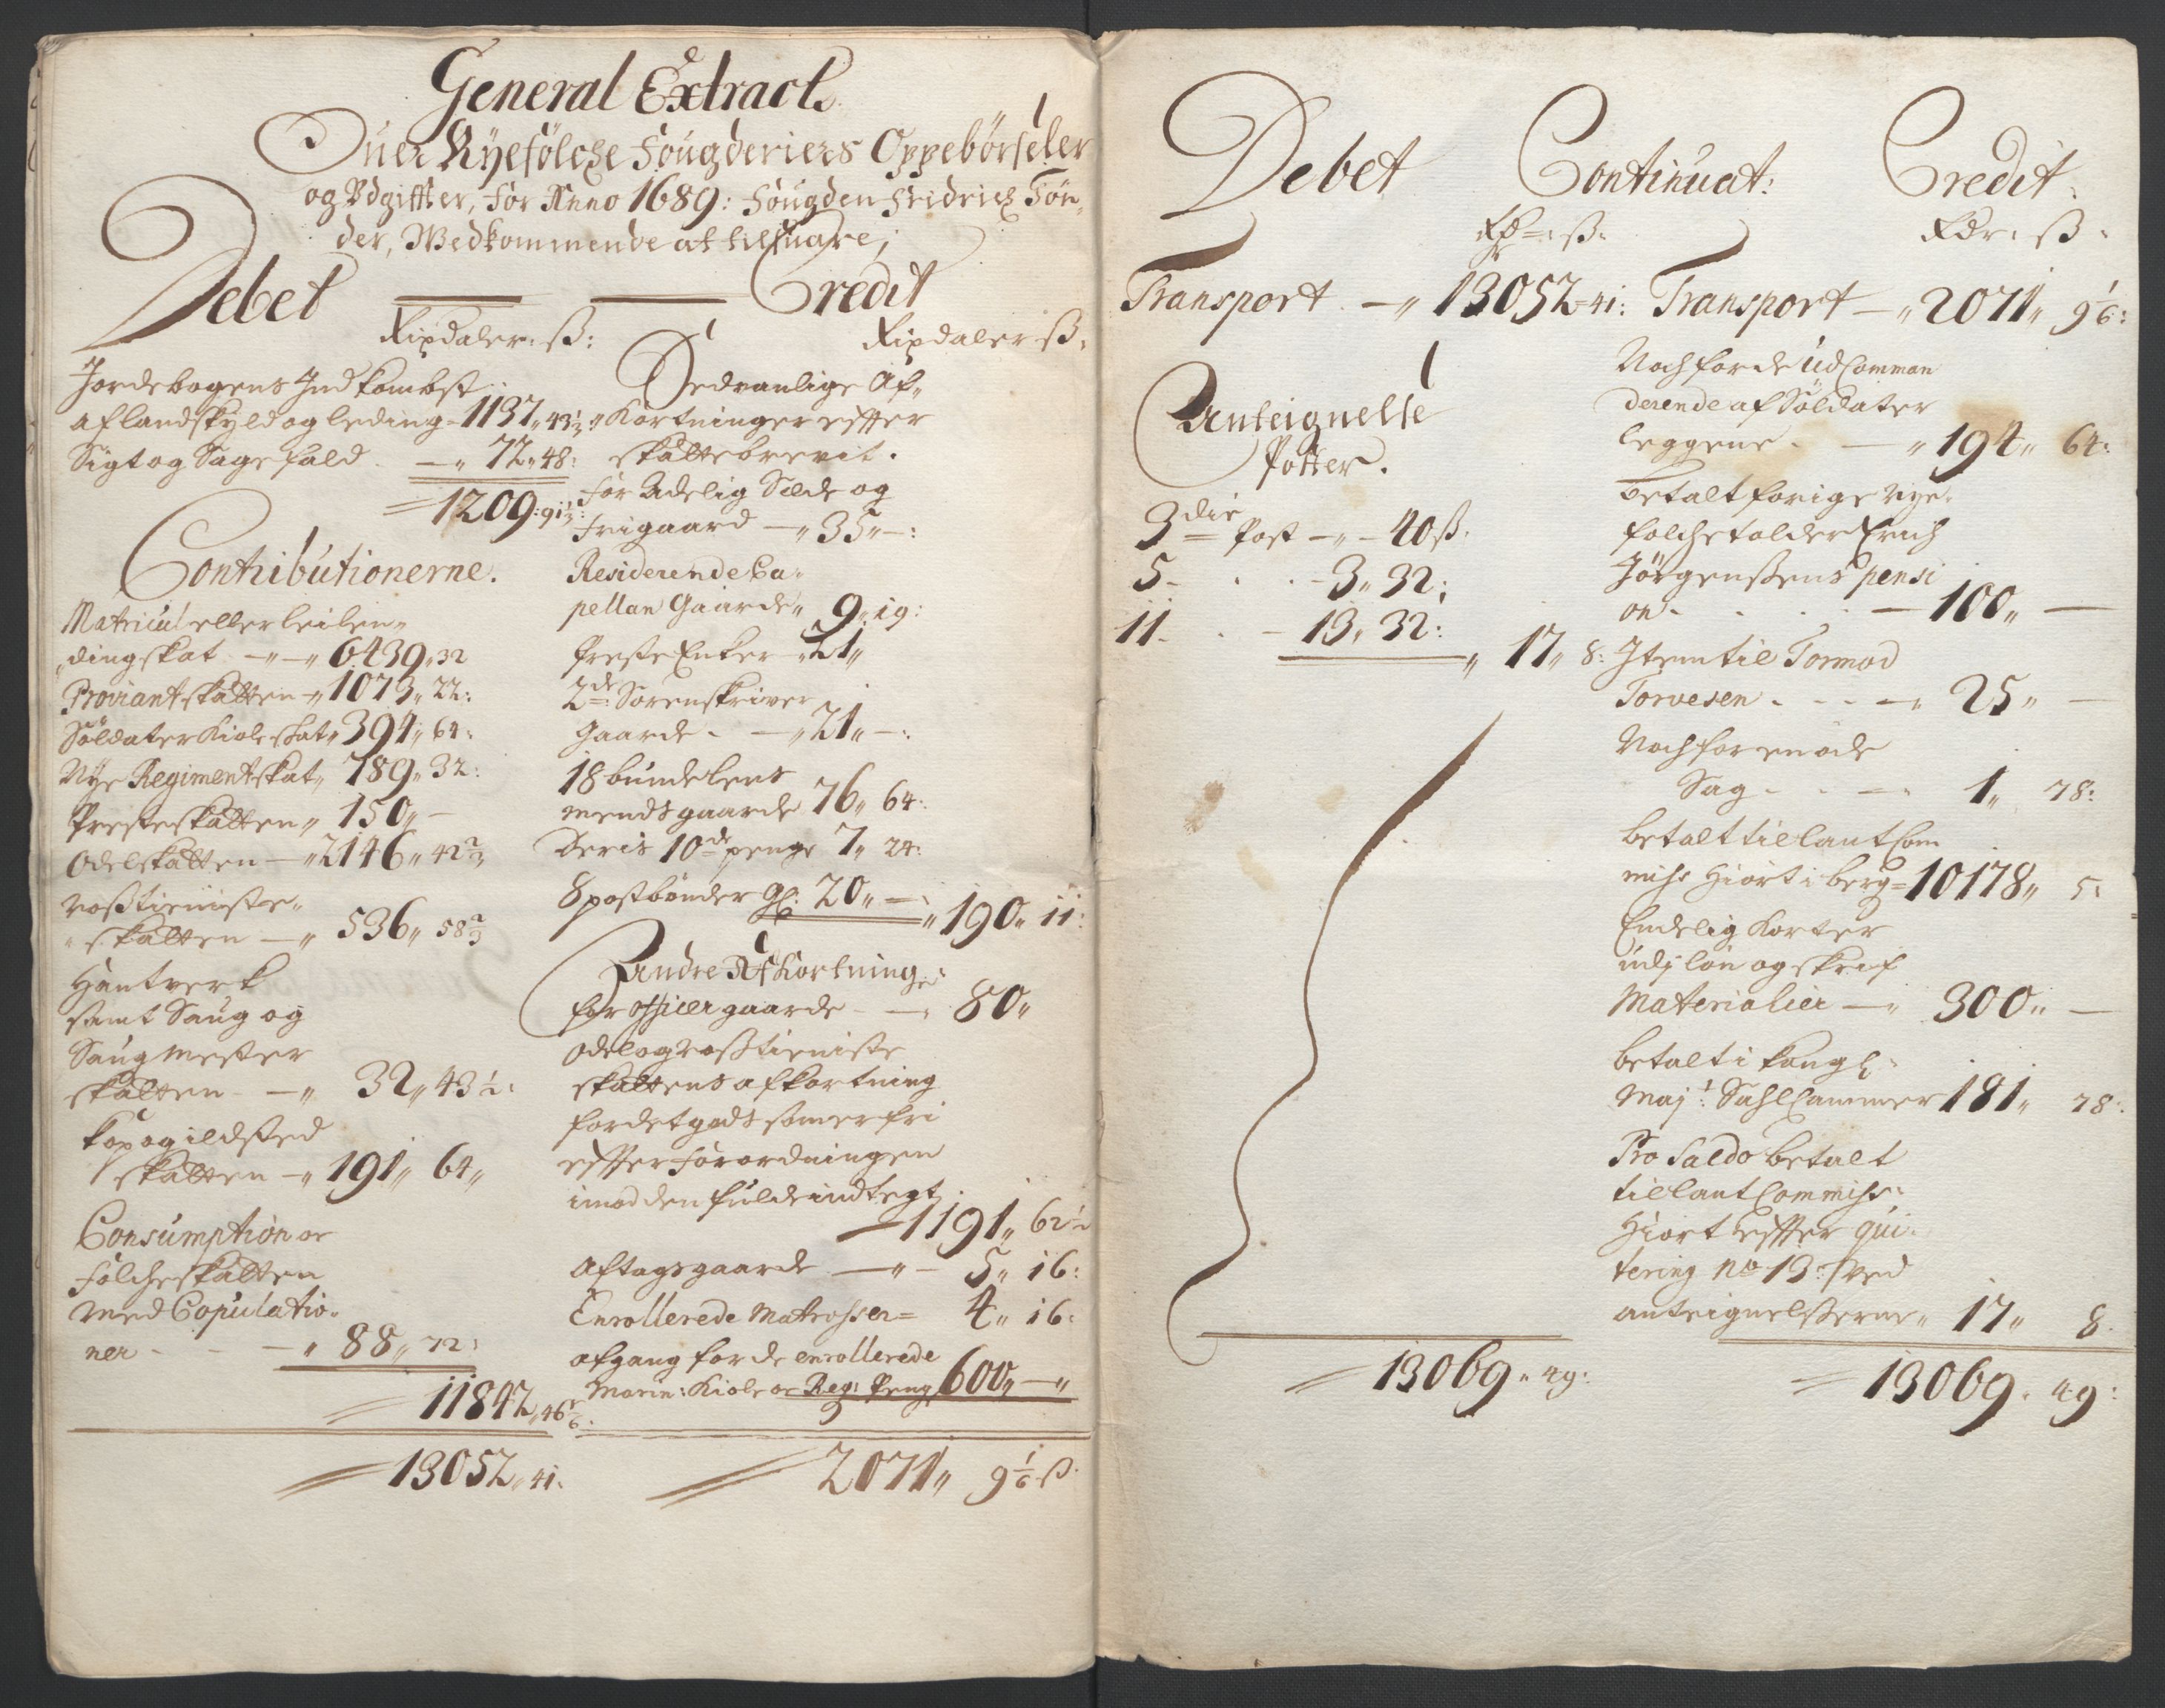 General Extract
Over Ryefölche Fougderiers Oppebörseler
og Udgiffter, for Anno 1689: Fougden Fridrich Tön-
der, Vedkommende at tilsuare;
Debet
Rixdaler: ß:
Jordebogens Indkombst
af landskyld og leding - 1137,, 43 1/3
Sigt og Sagefald - ,, 72,, 48:
1209: 91 1/3:
Contributionerne.
Matricul eller leilen-
dingskat - ,, - ,, 6439,, 32
Proviantskatten - ,, 1073,, 22:
Söldater Kioleskat ,, 394,, 64:
Nye Regimentskat ,, 789,, 32:
Presteskatten ,, 150,, -
Odelskatten - ,, 2146,, 42 2/3
Rosstieniste-
skatten - ,, 536,, 58 2/3
Hantverk
samt Saug og
Saugmester
skatten - ,, 32,, 43 1/2:
Kop og ildsted
skatten - ,, 191,, 64,,
Consumption oc
Folcheskatten
med Copulatio-
ner - - - ,, 88,, 72:
11842,, 46
13052,, 41:
Credit
Rixdaler ß:
Sedvanlige Af-
Kortninger effter
skattebrevit.
For Adelig Sæde og
Frigaard - ,, 35,, -:
Residerende Ca-
pellan Gaarde ,, 9,, 19:
Preste Enker - ,, 21,,
2de Sorenskriver
Gaarde - - ,, 21,, -:
18 bundelens
mends gaarde 76,, 64:
Deris 10de penge 7,, 24:
8 postbönder 20,, - ,, 190,, 11:
Andre Afkortninger
for officer gaarde - - 80,,
Odel og Rosstieniste
skattens afkortning
for det gods som er fri
effter Forordningen
imod den fulde indtegt
- 1191,, 62 1/2
Aftagsgaarde - ,, - 5,, 16:
Enrollerede Matrosser = 4,, 16:
afgang for de enrollerede
Marin: Kiole oc Reg: Peng 600,, - ,,
2071,, 9 1/6 ß
Debet Continuat: Credit
Rdr: ß: Rdr: ß:
Transport - ,, 13052 = 41: Transport - ,, 2071,, 9 1/6:
Anteignelse
Poster.
3die Post - ,, - 40 ß.
5 - . . - 3,, 32:
11 - . - 13,, 32: ,, 17,, 8:
13069,, 49:
Noch for de Udcomman
derende af Söldater
leggene - - ,, 194,, 64:
betalt forige Rye-
folche tolder Erich
Jörgensens pensi
on - . . . - 100,, -
Item til Tormod
Torvesen - - - ,, 25,, -
Noch for en öde
Sag - . - 1,, 78:
betalt til lant Com
miss Hiort i berg = 10178,, 5:
Endelig Korter
udj lön og skrif
Materialier - ,, 300,, -
betalt i kongl:
Maj:t Sahl Cammer 181,, 78:
Pro Saldo betalt
til lant Commiss:
Hiort effter qui-
tering No 13: ved
anteignelsserne ,, 17,, 8
13069,, 49: